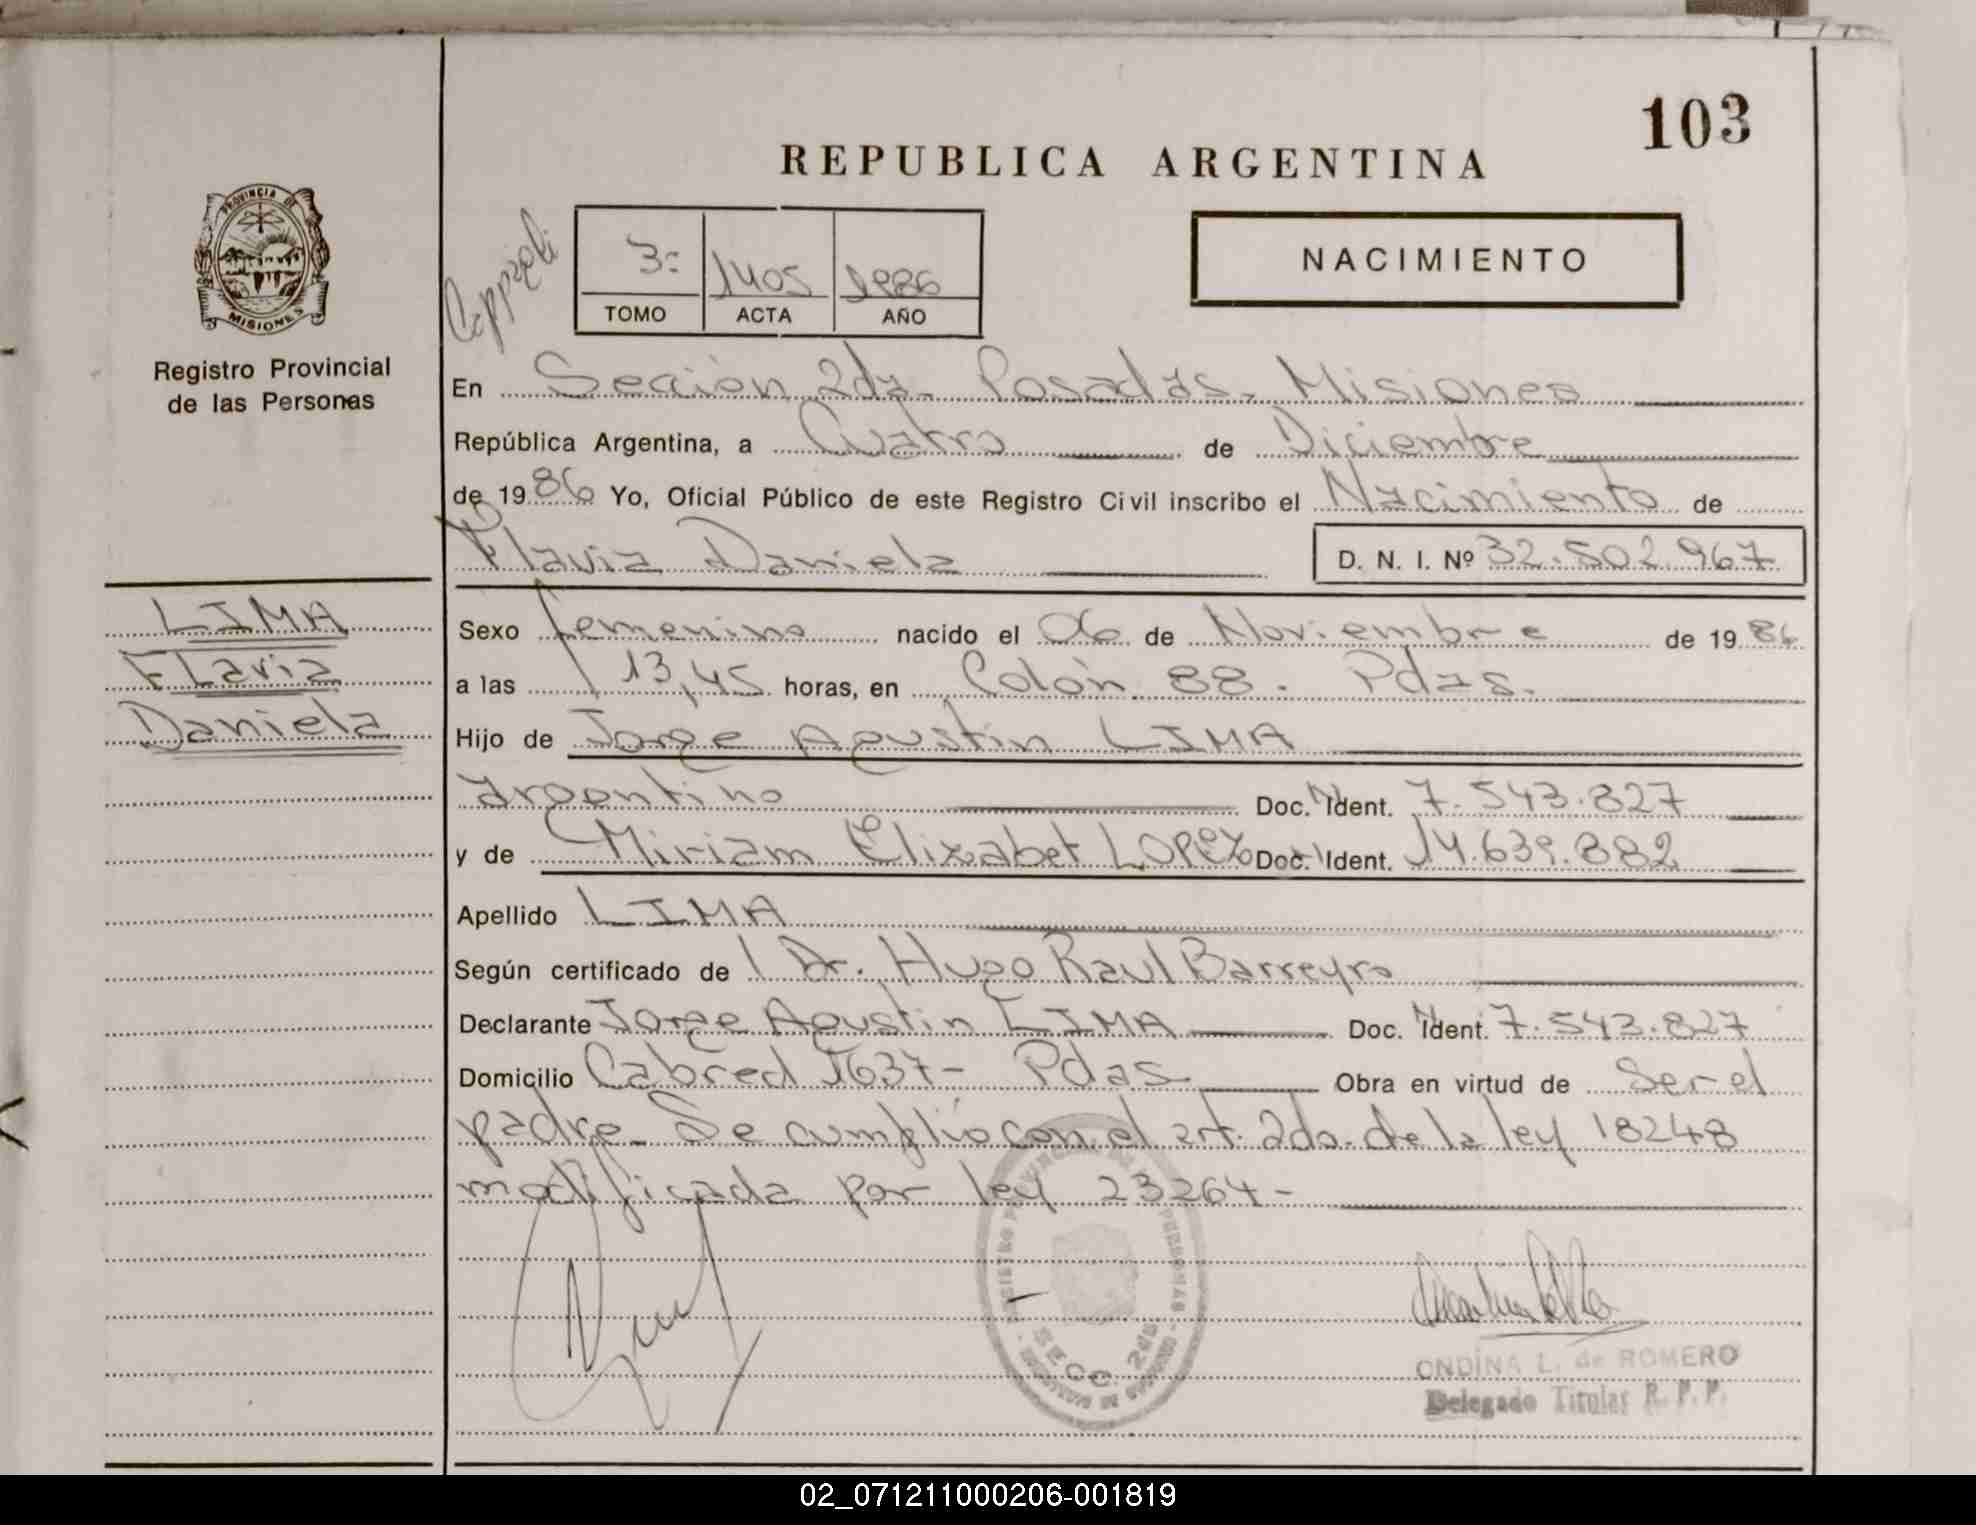 103
REPUBLICA ARGENTINA
PROVINCIA DE
MISIONES
Registro Provincial
de las Personas
3=
1405
1986
TOMO
ACTA
AÑO
NACIMIENTO
En Sección 2da. Posadas. Misiones
República Argentina, a Cuatro de Diciembre
de 1986 Yo, Oficial Público de este Registro Civil inscribo el Nacimiento de
Flavia Daniela
D. N. I. Nº 32.502.967
LIMA
Flavia
Daniela
Sexo femenino nacido el 06 de Noviembre de 1986
a las 13,45 horas, en Colón 88. Pdas.
Hijo de Jorge Agustin LIMA
argentino Doc. Ident. 7.543.827
y de Miriam Elizabet LOPEZ Doc. Ident. 14.639.882
Apellido LIMA
Según certificado de Dr. Hugo Raul Barreyro
Declarante Jorge Agustin LIMA Doc. Ident. 7.543.827
Domicilio Cabred 1637- Pdas Obra en virtud de Ser el
padre. Se cumplió con el art. 2do. de la ley 18248
modificada por ley 23264-
SECC. 2da.
ONDINA L. de ROMERO
Delegado Titular R. P. P.
02_071211000206-001819